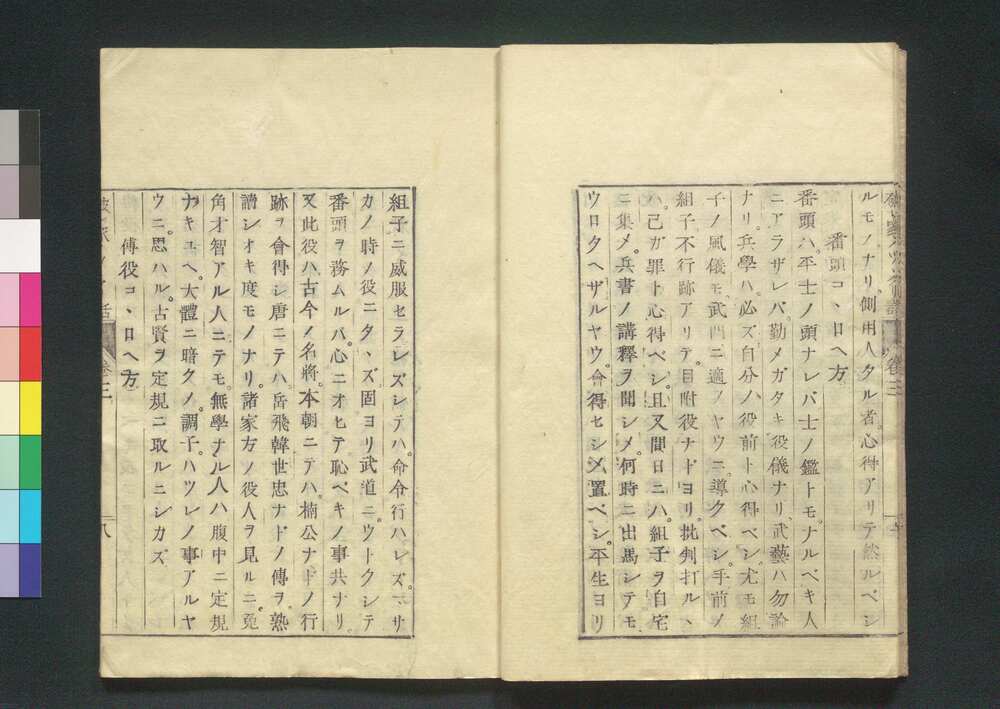 ルモノナリ。側用人タル者。心得アリテ然ルベシ
番頭コヽロヘ方
番頭ハ。平士ノ頭ナレバ士ノ鑑トモ。ナルベキ人
ニアラザレバ。勤メガタキ役儀ナリ。武藝ハ勿論
ナリ。兵學ハ。必ズ自分ノ役前ト心得ベシ。尤モ組
子ノ風儀モ。武門ニ適フヤウニ。導クベシ。手前ノ
組子不行跡アリテ。目附役ナドヨリ。批判打ルヽ
ハ。己ガ罪ト心得ベシ。且又間日ニハ。組子ヲ自宅
ニ集メ。兵書ノ講釋ヲ聞シメ。何時ニ出馬シテモ
ウロタヘザルヤウ。會得セシメ。置ベシ。平生ヨリ
卷三
組子ニ威服セラレズシテハ。命令行ハレズ。マサ
カノ時ノ役ニタヽズ。固ヨリ武道ニ。ウトクシテ
番頭ヲ務ムルバ。心ニオヒテ恥ベキノ事共ナリ
又此役ハ。古今ノ名將。本朝ニテハ。楠公ナドノ行
跡ヲ會得シ。唐ニテハ。岳飛韓世忠ナドノ傳ヲ。熟
讀シオキ度モノナリ。諸家方ノ役人ヲ見ルニ。兎
角才智アル人ニテモ。無學ナル人ハ。腹中ニ定規
ナキユヘ。大體ニ暗クノ。調子ハツレノ事アルヤ
ウニ。思ハル。古賢ヲ定規ニ取ルニシカズ
傅役コヽロヘ方
卷三
八